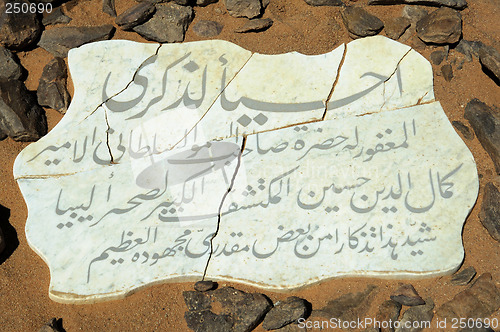 250690
احياءً لذكرى
المغفور له حضرة صاحب السمو السلطاني الامير
كمال الدين حسين المكتشف الكبير لصحراء ليبيا
شيد هذا تذكارا من بعض مقدري مجهوده العظيم
250690